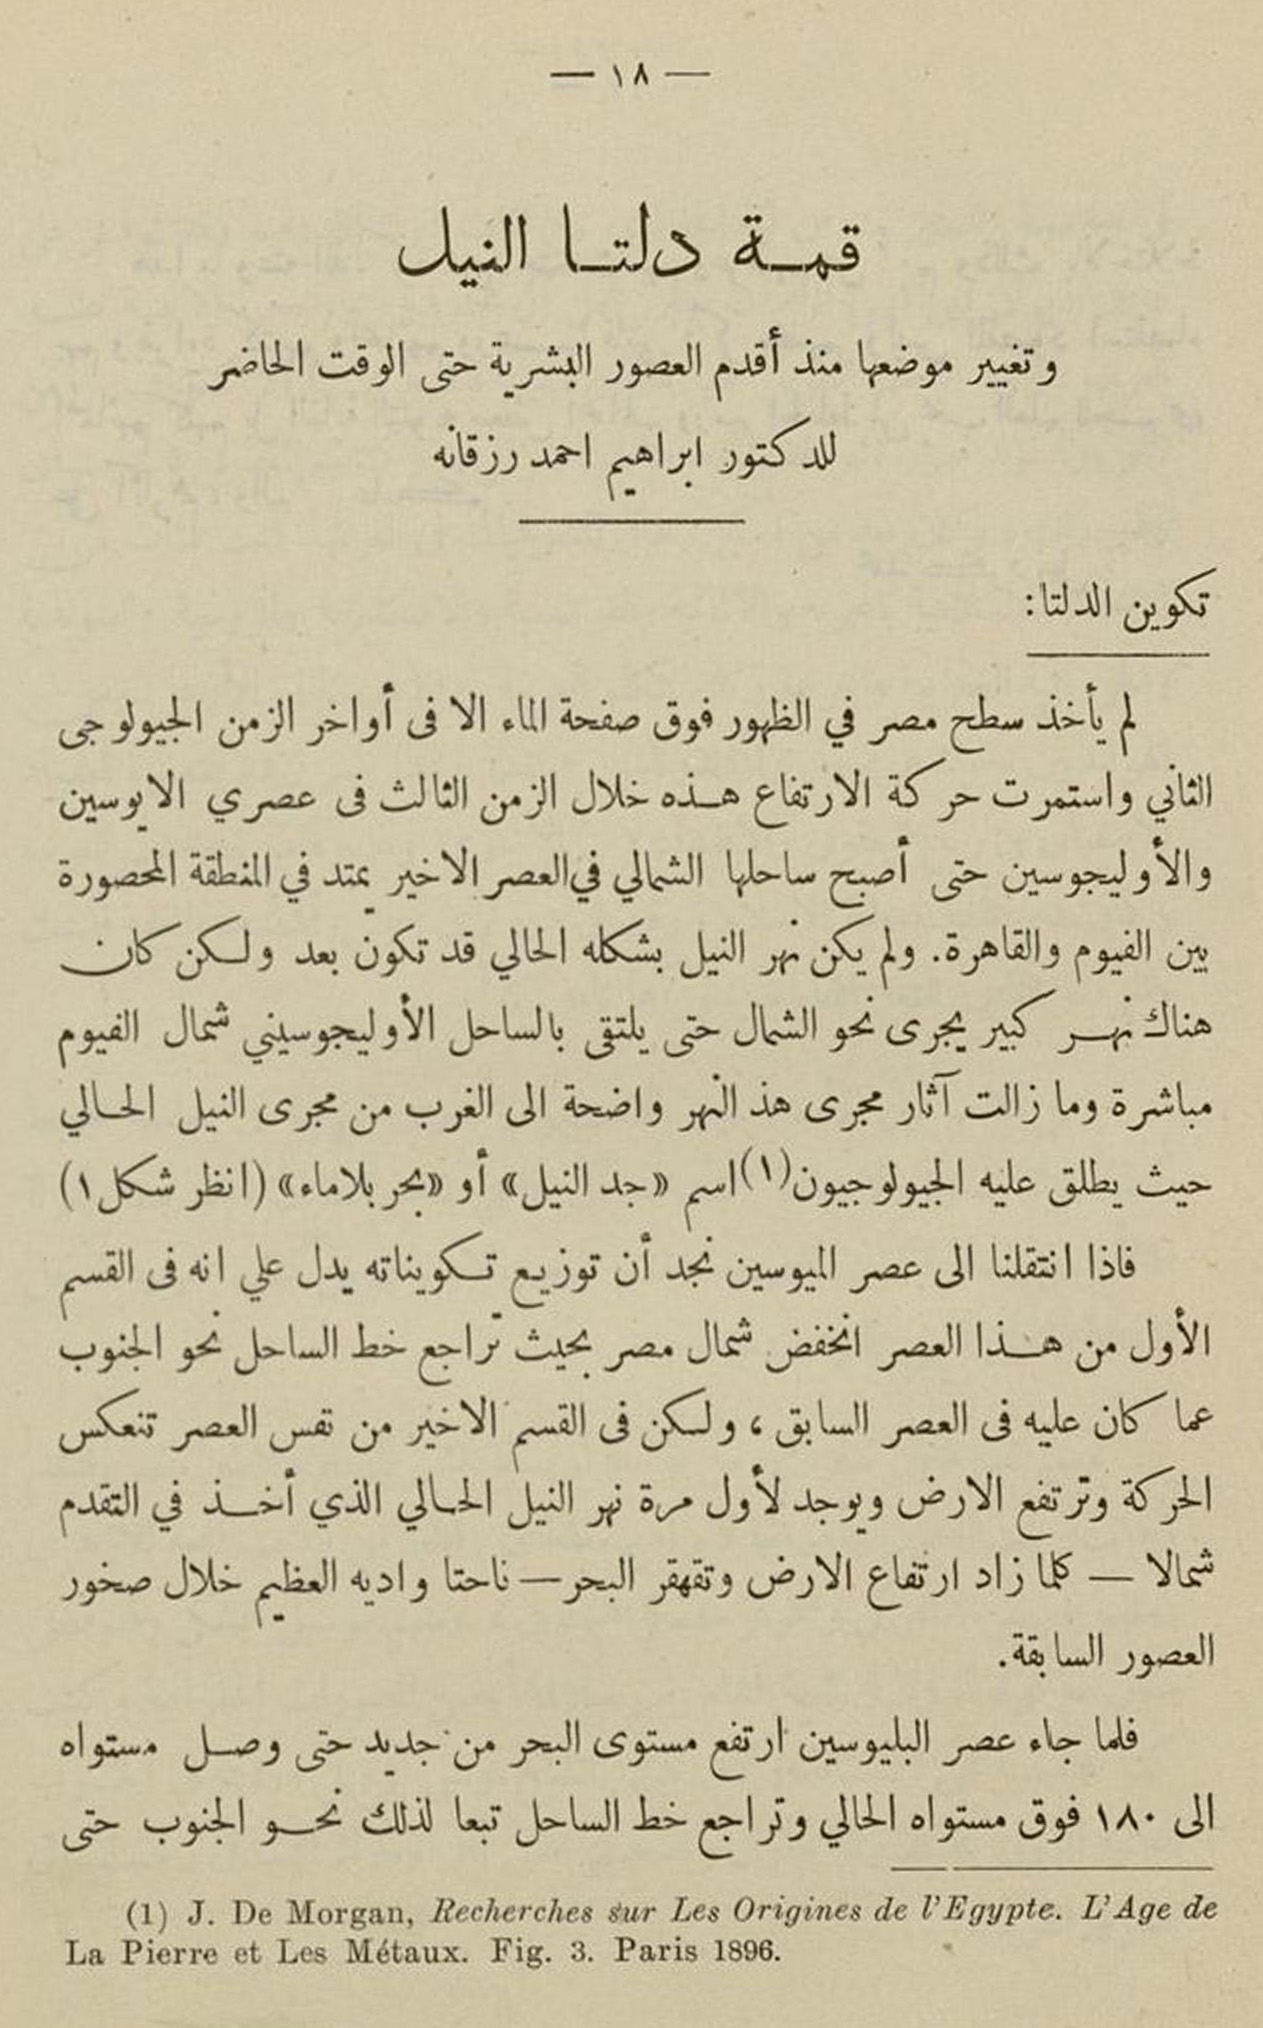 — ١٨ —
قمة دلتا النيل
وتغيير موضعها منذ أقدم العصور البشرية حتى الوقت الحاضر
للدكتور ابراهيم احمد رزقانه
تكوين الدلتا:
لم يأخذ سطح مصر في الظهور فوق صفحة الماء الا فى أواخر الزمن الجيولوجى
الثاني واستمرت حركة الارتفاع هذه خلال الزمن الثالث فى عصري الايوسين
والأوليجوسين حتى أصبح ساحلها الشمالي في العصر الاخير يمتد في المنطقة المحصورة
بين الفيوم والقاهرة. ولم يكن نهر النيل بشكله الحالي قد تكون بعد ولكن كان
هناك نهر كبير يجرى نحو الشمال حتى يلتقى بالساحل الأوليجوسيني شمال الفيوم
مباشرة وما زالت آثار مجرى هذ النهر واضحة الى الغرب من مجرى النيل الحالي
حيث يطلق عليه الجيولوجيون(١) اسم «جد النيل» أو «بحر بلاماء» (انظر شكل ١)
فاذا انتقلنا الى عصر الميوسين نجد أن توزيع تكويناته يدل علي انه فى القسم
الأول من هذا العصر انخفض شمال مصر بحيث تراجع خط الساحل نحو الجنوب
عما كان عليه فى العصر السابق، ولكن فى القسم الاخير من نفس العصر تنعكس
الحركة وترتفع الارض ويوجد لأول مرة نهر النيل الحالي الذي أخذ في التقدم
شمالا — كلما زاد ارتفاع الارض وتقهقر البحر — ناحتا واديه العظيم خلال صخور
العصور السابقة.
فلما جاء عصر البليوسين ارتفع مستوى البحر من جديد حتى وصل مستواه
الى ١٨٠ فوق مستواه الحالي وتراجع خط الساحل تبعا لذلك نحو الجنوب حتى
(1) J. De Morgan, Recherches sur Les Origines de l'Egypte. L'Age de
La Pierre et Les Métaux. Fig. 3. Paris 1896.